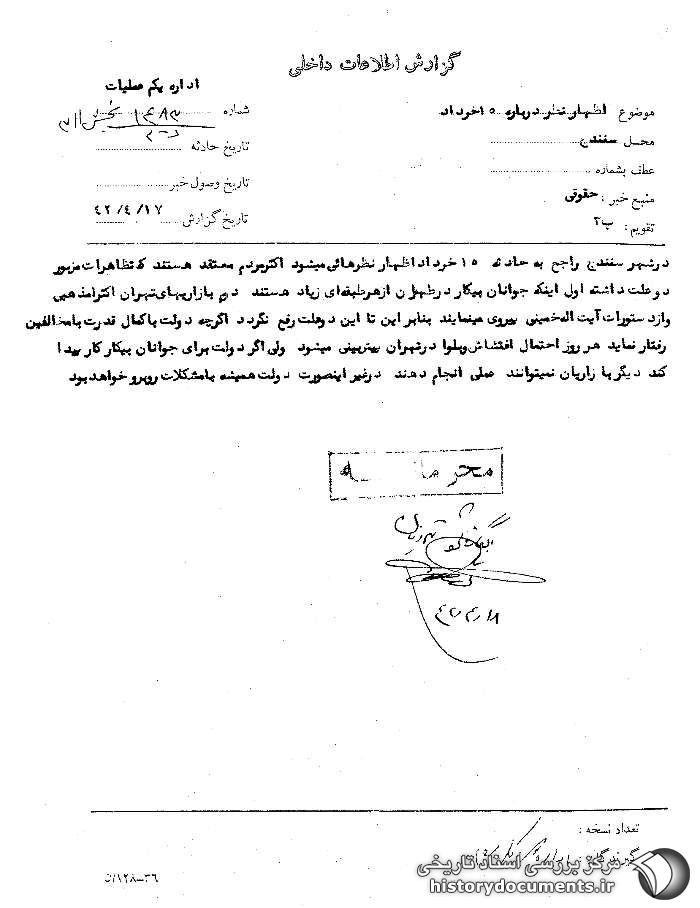 گزارش اطلاعات داخلی
اداره یکم عملیات
موضوع اظهار نظر درباره ۱۵ خرداد
شماره
محل سنندج
تاریخ حادثه
عطف بشماره
تاریخ وصول خبر
منبع خبر : حقوقی
تاریخ گزارش ۴۲/۴/۱۷
تقویم : ب۲
در شهر سنندج راجع به حادثه ۱۵ خرداد اظهار نظرهائی میشود اکثر مردم معتقد هستند که تظاهرات مزبور
دو علت داشته اول اینکه جوانان بیکار در طهران از هر طبقه‌ای زیاد هستند دوم بازاریهای تهران اکثرا مذهبی
و از دستورات آیت اله خمینی پیروی مینمایند بنابر این تا این دو علت رفع نگردد اگرچه دولت با کمال قدرت با مخالفین
رفتار نماید هر روز احتمال اغتشاش و بلوا در شهران پیش‌بینی میشود ولی اگر دولت برای جوانان بیکار کار پیدا
کند دیگر بازاریان نمیتوانند عملی انجام دهند در غیر اینصورت دولت همیشه با مشکلات روبرو خواهد بود
محرمانه
تعداد نسخه :
مرکز بررسی اسناد تاریخی
historydocuments.ir